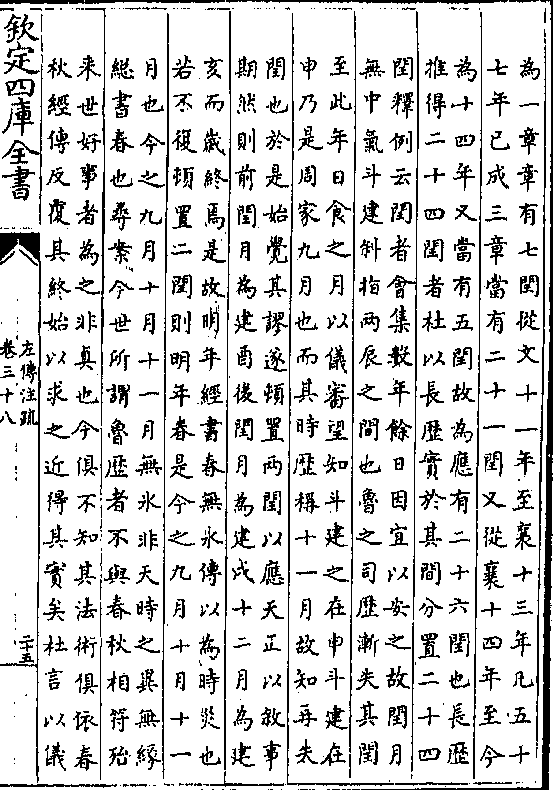 為一章章有七閏從文十一年至襄十三年凡五十
七年已成三章當有二十一閏又從襄十四年至今
為十四年又當有五閏故為應有二十六閏也長歷
推得二十四閏者杜以長歷實於其間分置二十四
閏釋例云閏者會集數年餘日因宜以安之故閏月
無中氣斗建斜指兩辰之間也魯之司歷漸失其閏
至此年日食之月以儀審望知斗建之在申斗建在
申乃是周家九月也而其時歷稱十一月故知再失
閏也於是始覺其謬遂頓置兩閏以應天正以敘事
期然則前閏月為建酉後閏月為建戌十二月為建
亥而歲終焉是故明年經書春無氷傳以為時災也
若不復頓置二閏則明年春是今之九月十月十一
月也今之九月十月十一月無氷非天時之異無緣
總書春也尋案今世所謂魯歷者不與春秋相符殆
来世好事者為之非真也今俱不知其法術俱依春
秋經傳反覆其終始以求之近得其實矣杜言以儀
欽定四庫全書
左傳注疏
卷三十八
二十五